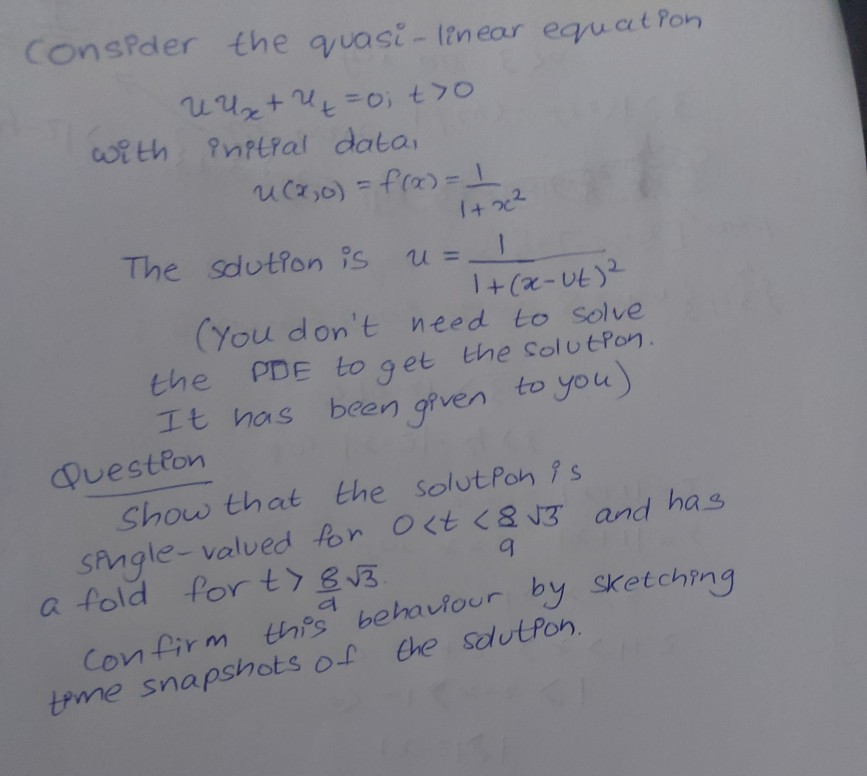 Consider the quasi-linear equation
u uₓ + uₜ = 0; t>0
with initial data,
u(x,0) = f(x) = 1/(1+x²)
The solution is u = 1/(1+(x-ut)²)
(You don't need to solve
the PDE to get the solution.
It has been given to you)
Question
Show that the solution is
single-valued for 0<t<8/9 √3 and has
a fold for t> 8/9 √3.
Confirm this behaviour by sketching
time snapshots of the solution.